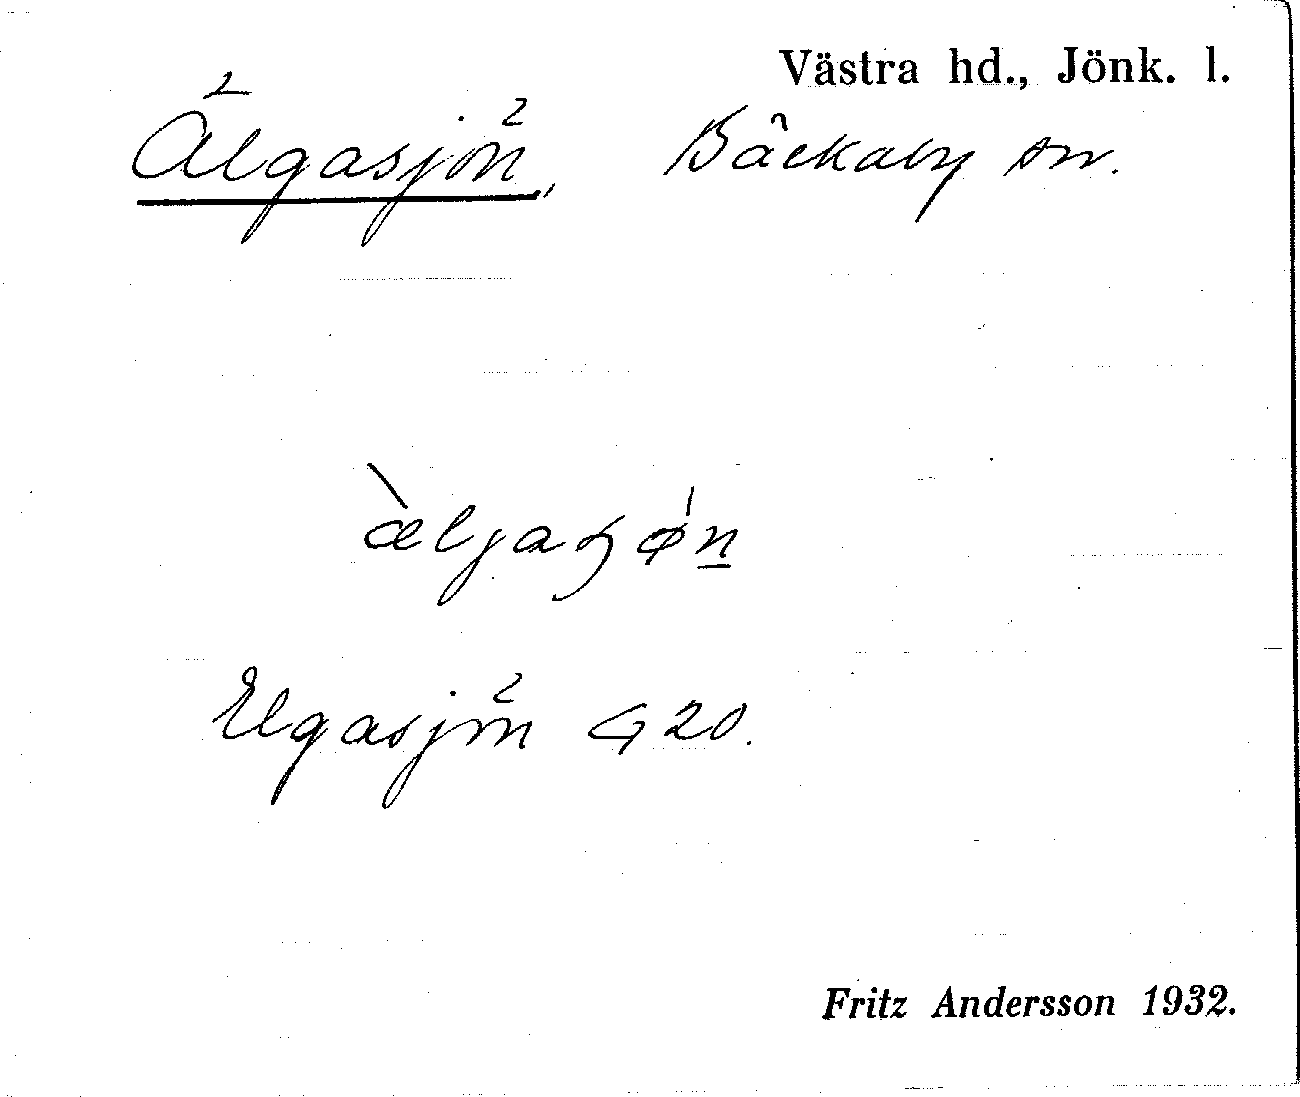 Västra hd., Jönk. l.
Älgasjön, Bäckaby sn.
æ̀ljaʂǿn
Elgasjön G 20.
Fritz Andersson 1932.